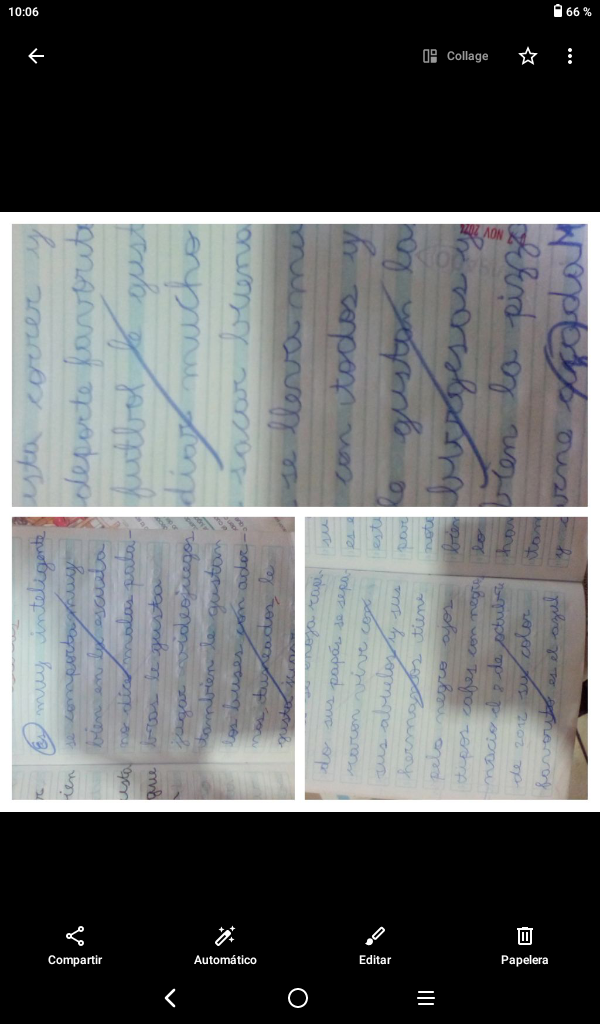 10:06
66 %
Collage
usta correr y
deporte favorito
futbol le gust
diar mucho
sacar buena
se lleva mu
con todos y
le gustan la
hamburgesas y
bien la pizz
7 NOV 202
Es muy inteligente
se comporta muy
bien en la escuela
no dice malas pala-
bras le gusta
jugar videojuegos
tambien le gustan
los buses con ador-
nos, le
gusta
ien
usta
que
se enoja
do sus papás se sepa-
raron vivir con
sus abuelos y sus
hermanos tiene
pelo negro ojos
cafes con negro
nacio el 2 de octubre
de 2012 su color
favorito es el azul
su
es
esta
par
note
bien
lo
tam
y
Compartir
Automático
Editar
Papelera